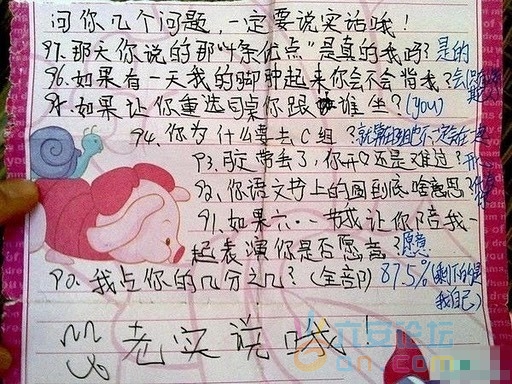 问你几个问题,一定要说实话哦!
97.那天你说的那"4条优点"是真的我吗?是的
96.如果有一天我的脚肿起来你会不会背我?会
95.如果让你重选同桌你跟谁坐?(you)
94.你为什么要去C组?
93.胶带丢了,你开心还是难过?开
92.你语文书上的圈到底啥意思?
91.如果六一节我让你陪我一
起表演你是否愿意?愿意
90.我占你的几分之几?(全部)87.5%(剩下的是
我自己)
老实说哦!
六安论坛